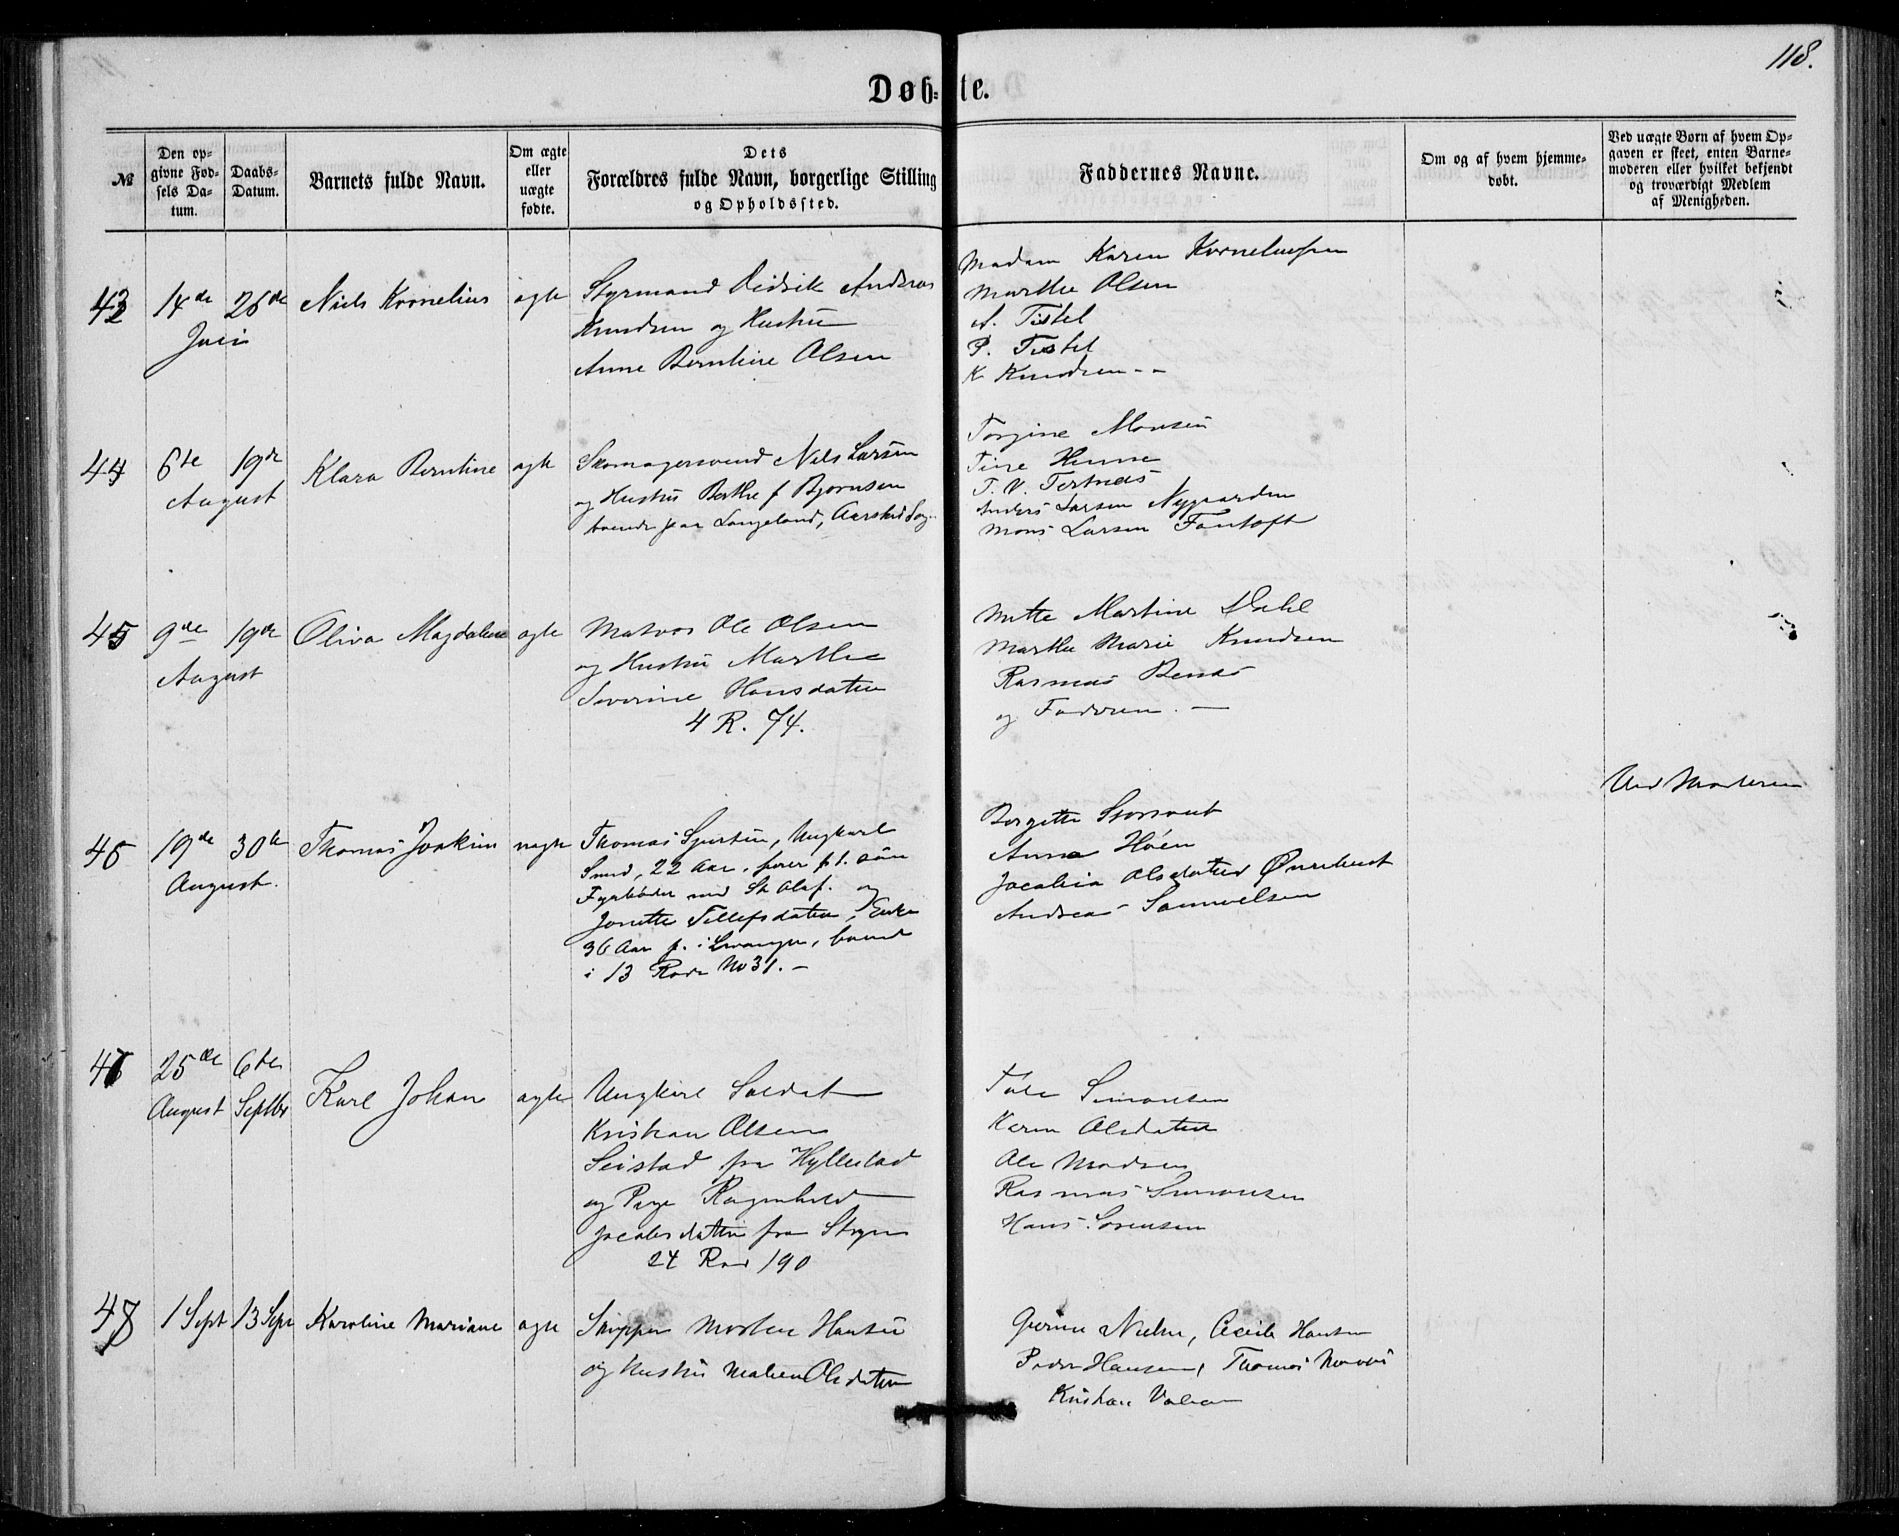 118.
Døb-te.
№
Den op-
givne Fød-
sels Da-
tum.
Daabs-
Datum.
Barnets fulde Navn.
Om ægte
eller
uægte
fødte.
Dets
Forældres fulde Navn, borgerlige Stilling
og Opholdssted.
Faddernes Navne.
Om og af hvem hjemme-
døbt.
Ved uægte Børn af hvem Op-
gaven er skeet, enten Barne-
moderen eller hvilket bekjendt
og troværdigt Medlem
af Menigheden.
14de
26de
Niels Kornelius
ægte
Styrmand Didrik Andreas
Knudsen og Hustru
Anne Berntine Olsen
Madam Karen
Marthe Olsen
A. Tistel
P. Tistel
K Knudsen
44
6te
August
19de
Klara Berntine
ægte
Skomagersvend Nils Larsen
og Hustru Berthe f Bjørnsen
boende paa Langeland, Aarstad Sog
Torgine Monsen
T. V. Tertnæs
Anders Larsen Nygaarden
Mons Larsen Fantoft
45
9de
August
19de
Oliva Magdalene
ægte
Matros Ole Olsen
og Hustru Marthe
Severine Hansdatter
4 R. 74.
Mette Martine Dahl
Marthe Marie Knudsen
Rasmus
og Faderen.
19de
August.
30te
Thomas Joakim
uægte
Thomas Ungkarl
Smed, 22 Aar,
Fyrbøder med St Olaf. og
Jonette Tellefsdatter, Enke
36 Aar f. i boende
i 13 Rode No 31.
Anne Høen
Jacobia Olsdatter
Andreas Samuelsen
Ved Moderen
25de
August
6te
Septbr
Karl Johan
ægte
Ungkarl Soldat
Kristian Olsen
Seistad fra Hyllestad
og Pige Ragnhild
Jacobsdatter fra Stryn
24 Rod 190
Simonsen
Karen Olsdatter
Ole Madsen
Rasmus Simonsen
Hans Sørensen
48
1 Sept
13 Sept
Karoline Mariane
ægte
Skipper Morten Hansen
og Hustru Malene Olsdatter
Cecilie Hansen
Peder Hansen, Thomas
Kristian